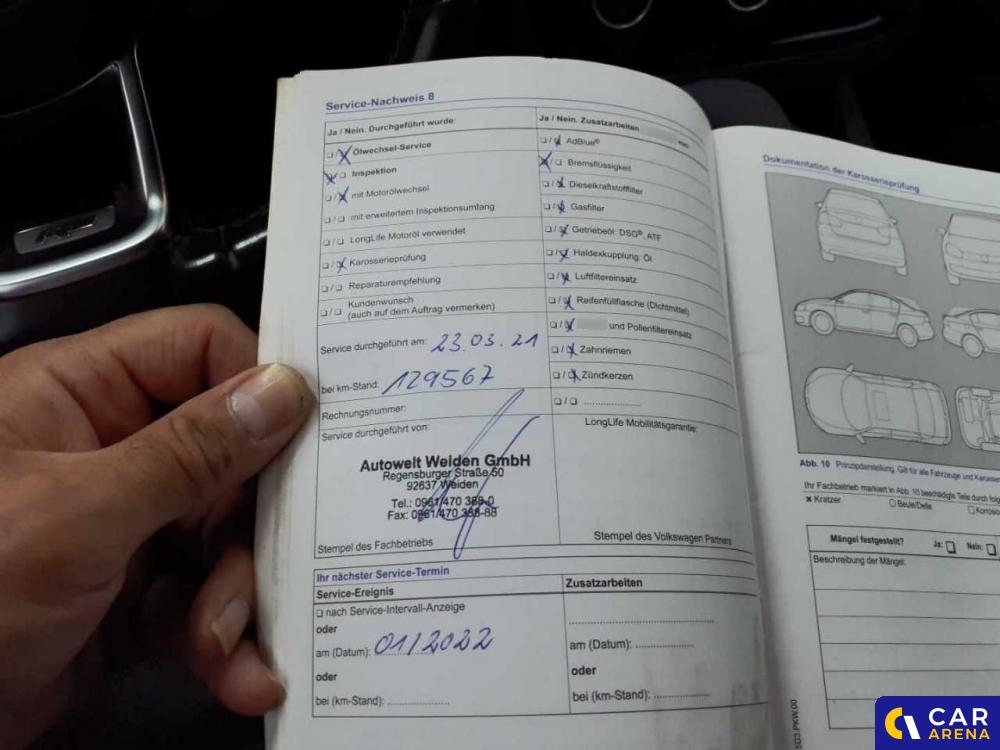 Service-Nachweis 8
Ja / Nein. Durchgeführt wurde:
Ölwechsel-Service
Inspektion
mit Motorölwechsel
mit erweitertem Inspektionsumfang
LongLife Motoröl verwendet
Karosserieprüfung
Reparaturempfehlung
Kundenwunsch
(auch auf dem Auftrag vermerken)
Service durchgeführt am: 23.03.21
bei km-Stand: 129567
Rechnungsnummer:
Service durchgeführt von:
Autowelt Weiden GmbH
Regensburger Straße 50
92637 Weiden
Tel.: 0961/470 388-0
Fax: 0961/470 388-88
Stempel des Fachbetriebs
Ja / Nein. Zusatzarbeiten
AdBlue®
Bremsflüssigkeit
Dieselkraftstofffilter
Gasfilter
Getriebeöl: DSG®, ATF
Haldexkupplung: Öl
Luftfiltereinsatz
Reifenfüllflasche (Dichtmittel)
und Pollenfiltereinsatz
Zahnriemen
Zündkerzen
LongLife Mobilitätsgarantie:
Stempel des Volkswagen Partners
Ihr nächster Service-Termin
Service-Ereignis
nach Service-Intervall-Anzeige
oder
am (Datum): 01/2022
oder
bei (km-Stand):
Zusatzarbeiten
am (Datum):
oder
bei (km-Stand):
Dokumentation der Karosserieprüfung
Abb. 10 Prinzipdarstellung. Gilt für alle Fahrzeuge und
Ihr Fachbetrieb markiert in Abb. 10 beschädigte Teile durch
Kratzer
Beule/Delle
Mängel festgestellt?
Ja:
Nein:
Beschreibung der Mängel:
CAR
ARENA